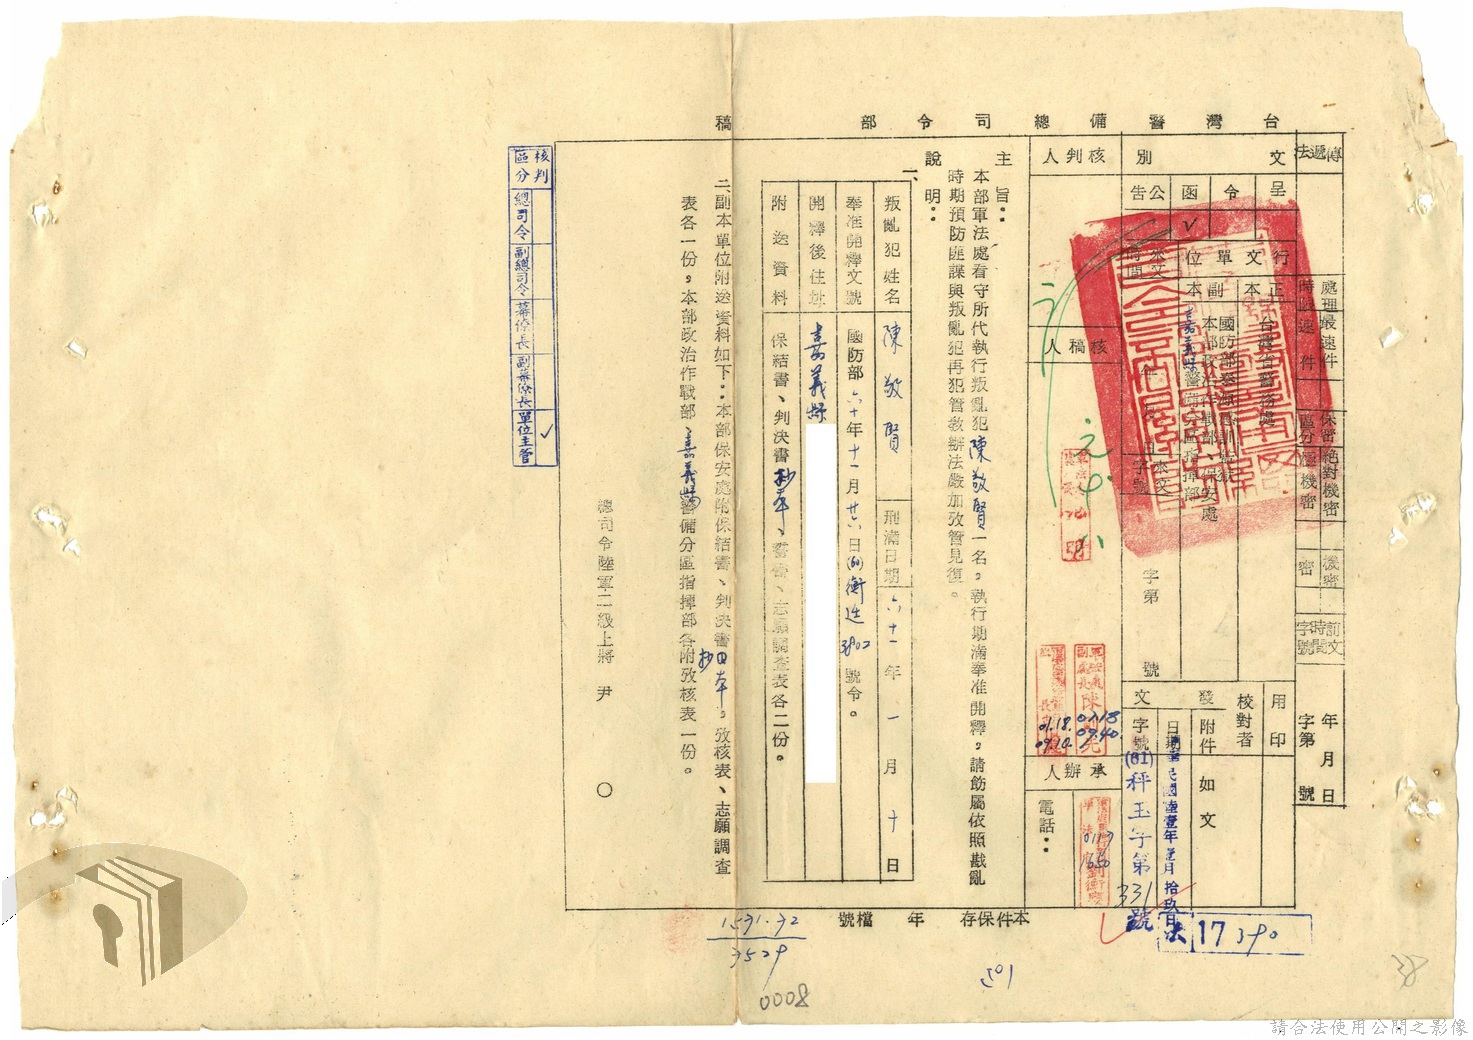 台灣警備總司令部 稿
傳遞法
處理時限
最速件
速件
保密區分
絕對機密
極機密
機密
密
前文時間字號
年月日
字第 號
文別
呈
令
函
公告
✓
行文單位
正本
台灣省警務處
副本
國防部泰源感訓監獄
本部政治作戰部、保安處
嘉義縣警備分區指揮部
來文時間
年月日
來文字號
字第 號
用印
校對者
發文
附件
如文
日期
中華民國陸壹年壹月拾玖日
字號
(61)秤玉字第331號
核判人
核稿人
承辦人
電話:
0118
0940
01.18.
09.10.
0117
1650
主旨:本部軍法處看守所代執行叛亂犯陳敬賢一名,執行期滿奉准開釋,請飭屬依照戡亂
時期預防匪諜與叛亂犯再犯管教辦法嚴加攷管見復。
說明:
一、
叛亂犯姓名 陳敬賢 刑滿日期 六十一年一月十日
奉准開釋文號 國防部六十年十一月廿六日(60)衡進3802號令。
開釋後住址 嘉義縣
附送資料 保結書、判決書抄本、誓書、志願調查表各二份。
二、副本單位附送資料如下:本部保安處附保結書、判決書抄本。攷核表、志願調查
表各一份。本部政治作戰部、嘉義縣警備分區指揮部各附攷核表一份。
總司令陸軍二級上將 尹 ○
核判區分
總司令
副總司令
幕僚長
副幕僚長
單位主管
✓
本件保存 年 檔號
1571.32
3529
0008
501
法 17390
38
請合法使用公開之影像